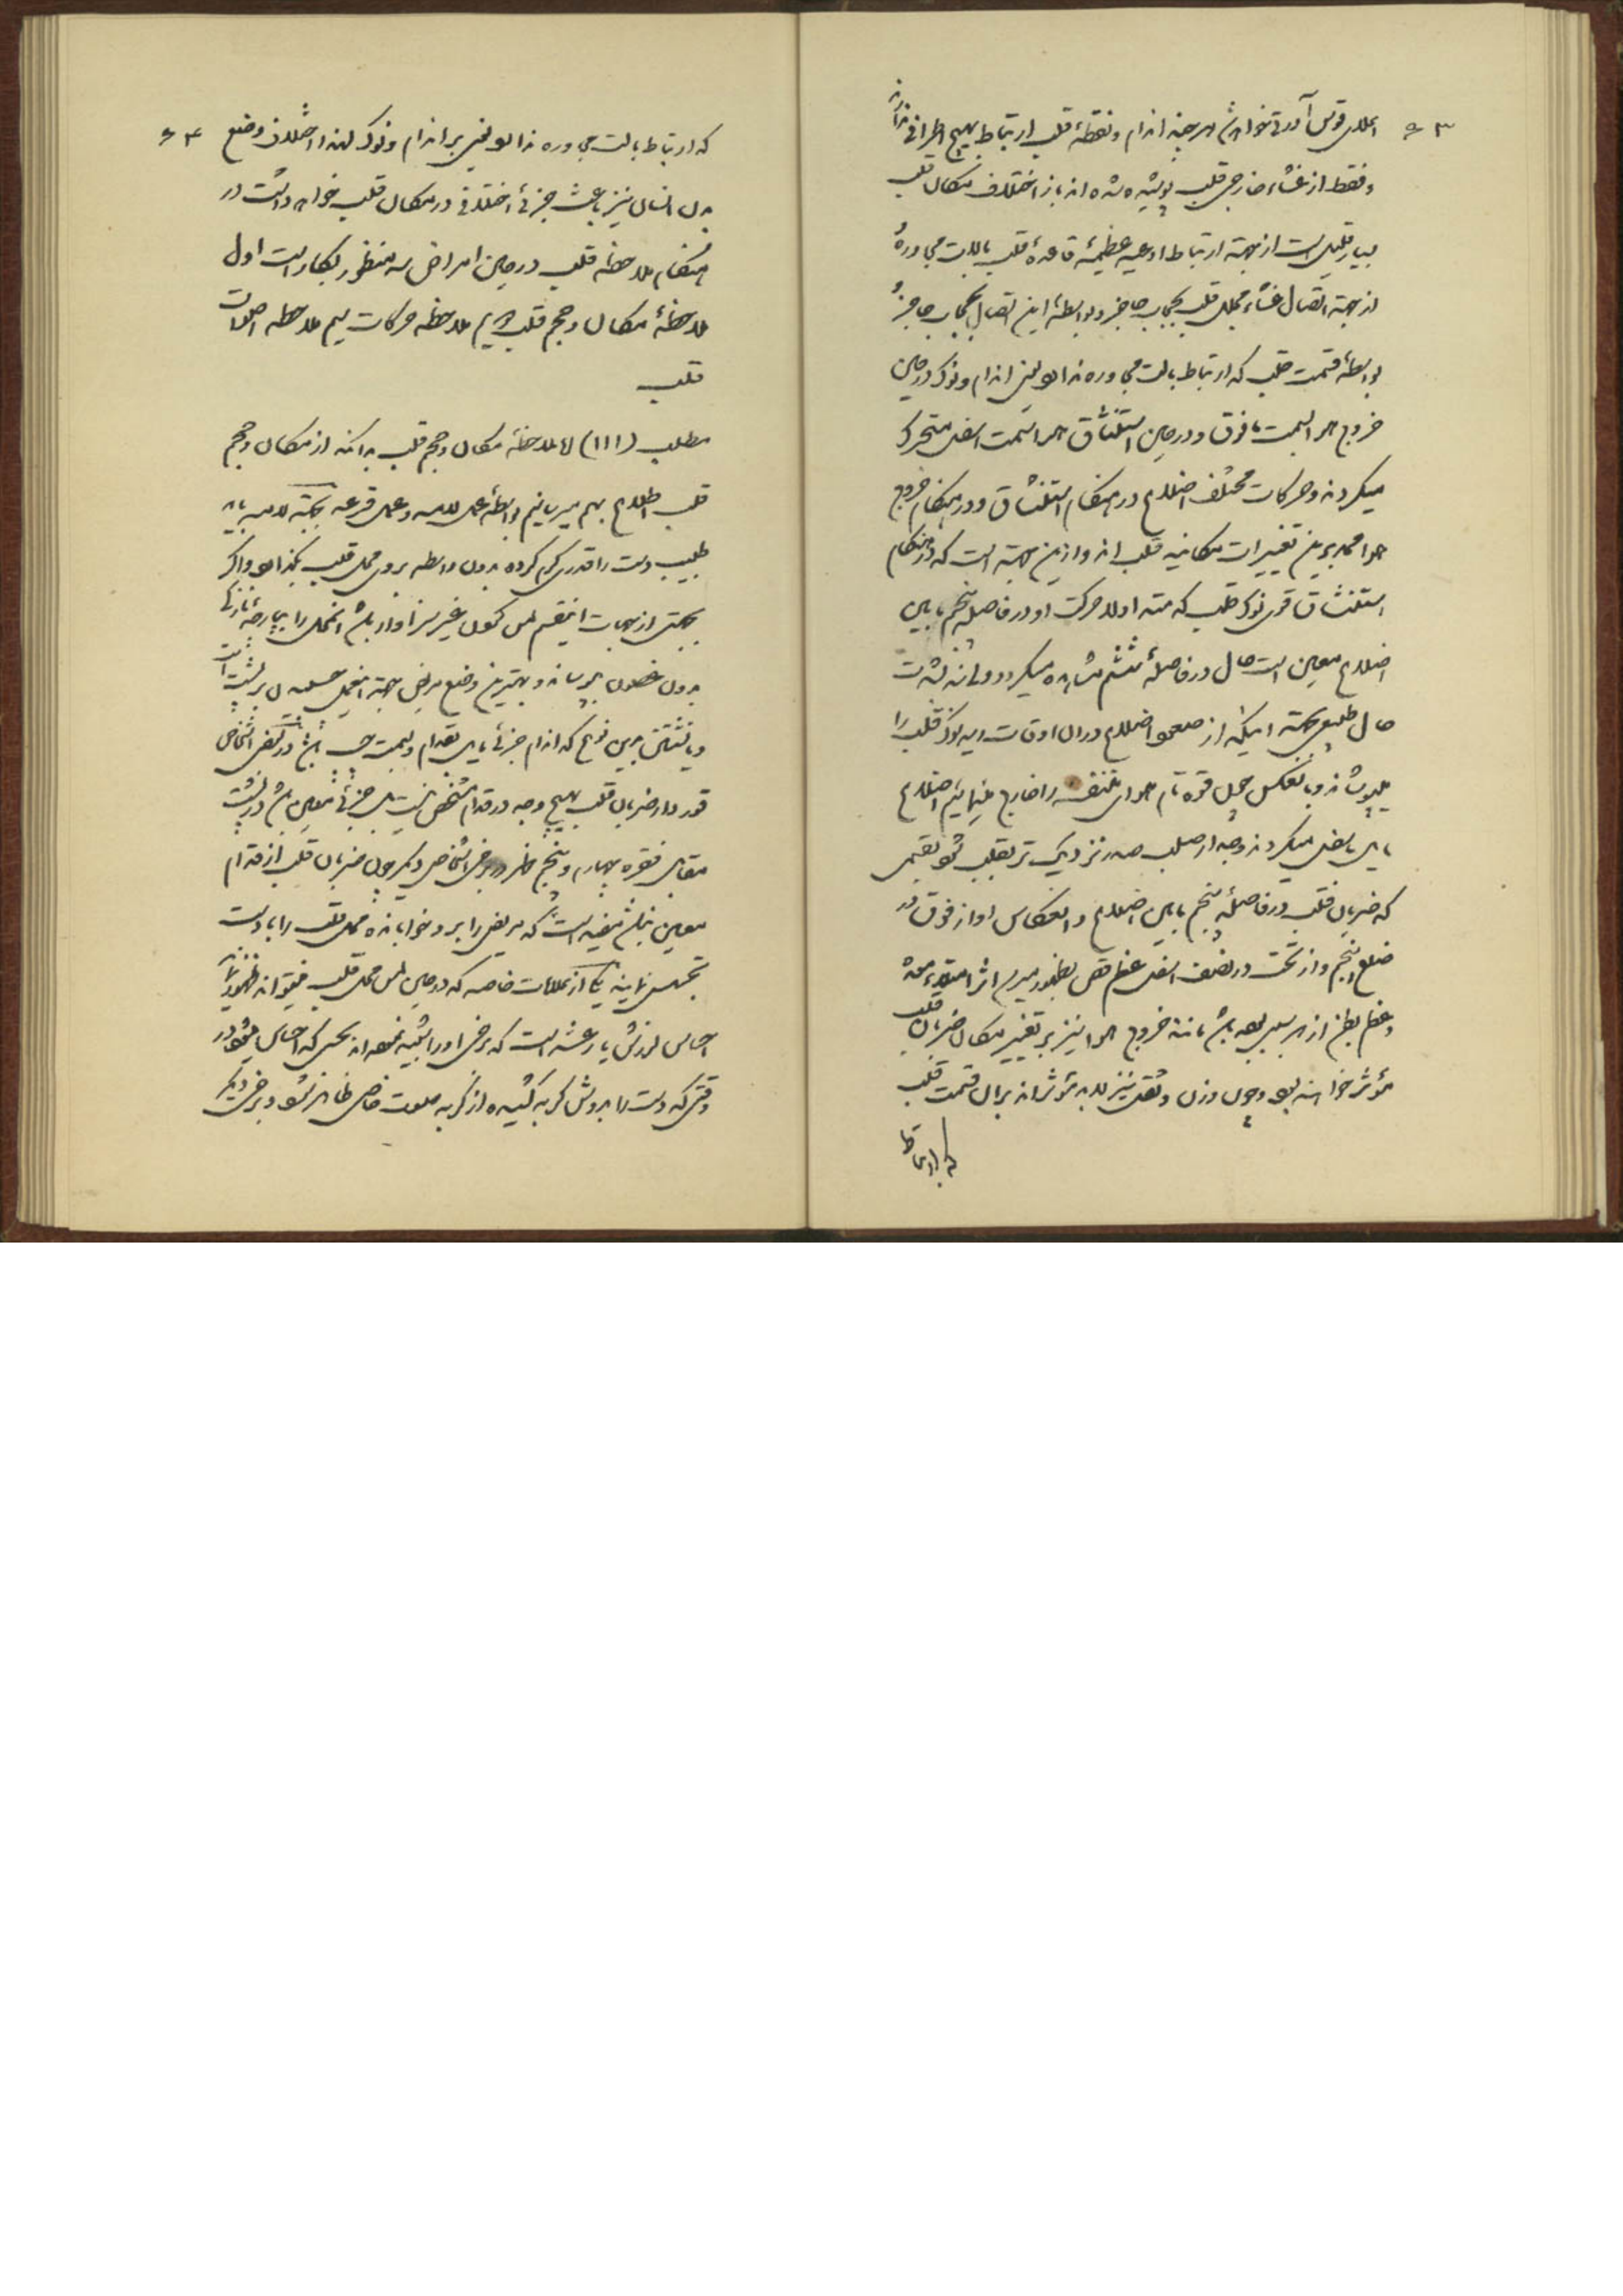 ۵۳
و فقط از غشاء خارجی قلب پوشیده شده اند باز اختلاف مکان قلب
بسیار قلیل است از جهة ارتباط اوعیه عظیمهٔ قاعدهٔ قلب بآلات مجاوره
از جهة اتصال غشاء قلب بحجاب حاجز و بواسطهٔ این اتصال بحجاب حاجز
بواسطهٔ قسمت قلب که ارتباط بآلت مجاوره ندارد یعنی اندام و نوک در حین
خروج هوا بسمت مافوق و در حین استنشاق هوا بسمت اسفل متحرک
میگردند و حرکات مختلف اضلاع در هنگام استنشاق و در هنگام خروج
هوا ممد برین تغییرات مکانیه قلب اند و ازین جهة است که در هنگام
استنشاق قوی نوک قلب که حرکت او در فاصله پنجم مابین
اضلاع معین است حال در فاصلهٔ ششم مشاهده میگردد
حال طبیعی بجهة اینکه از صعود اضلاع در آن اوقات ریه نوک قلب را
میپوشاند و بالعکس چون قوه تمام هوای تنفسیه را خارج نمائیم اضلاع
مایل باسفل میگردند و جدار صلب صدر نزدیک تر بقلب شود بقسمی
که ضربان قلب در فاصلهٔ پنجم مابین اضلاع و انعکاس او از فوق در
ضلع پنجم و از تحت در نصف اسفل عظم قص بظهور میرسد اثر امتلاء معده
و عظم بطن از هر سببی بوده باشد مانند خروج هوا نیز بر تغییر مکان ضربان قلب
مؤثر خواهند بود و چون وزن و ثقل نیز لابد مؤثر اند بر آن قسمت قلب
که ارتباط
۵۴
که ارتباط بآلت مجاوره ندارد یعنی بر اندام و نوک لهذا اختلاف وضع
بدن انسان نیز باعث جزئی اختلافی در مکان قلب خواهد داشت در
هنگام ملاحظه قلب در حین امراض سه منظور بکار است اول
ملاحظهٔ مکان و حجم قلب دویم ملاحظه حرکات سیم ملاحظه اصوات
قلب
مطلب (۱۱۱) ملاحظهٔ مکان و حجم قلب بدانکه از مکان و حجم
قلب اطلاع بهم میرسانیم بواسطهٔ عمل لامسه و عمل قرعه بجهة لامسه باید
طبیب دست را قدری گرم کرده بدون واسطه بروی محل قلب بگذارد و اگر
بجهتی از جهات اینقسم لمس کردن غیر سزاوار باشد آن محل را بپارچهٔ نازکی
بدون غضون بپوشاند و بهترین وضع مریض بجهة این عمل خسبیدن بر پشت است
و یا نشستن بدین نوع که اندام جزئی مایل بقدام و بسمت چپ باشد در بعضی اشخاص
قدر و مقدار ضربان قلب بهیچ وجه در قدام مشخص نیست جزئی معین باشد در پشت
مقابل فقره چهارم و پنجم ظهر و در برخی اشخاص دیگر چون ضربان قلب از قدام
معین نباشد مفید است که مریض را بر رو خوابانده محل قلب را با دست
تجسس نمایند یکی از علامات خاصه که در حین لمس محل قلب میتواند ظهور نماید
احساس لرزش یا رعشه است که برخی او را تشبیه نموده اند بحسی که احساس میشود در
وقتی که دست را بروش گربه کشیده از گربه صوت خاصی ظاهر شود و برخی دیگر